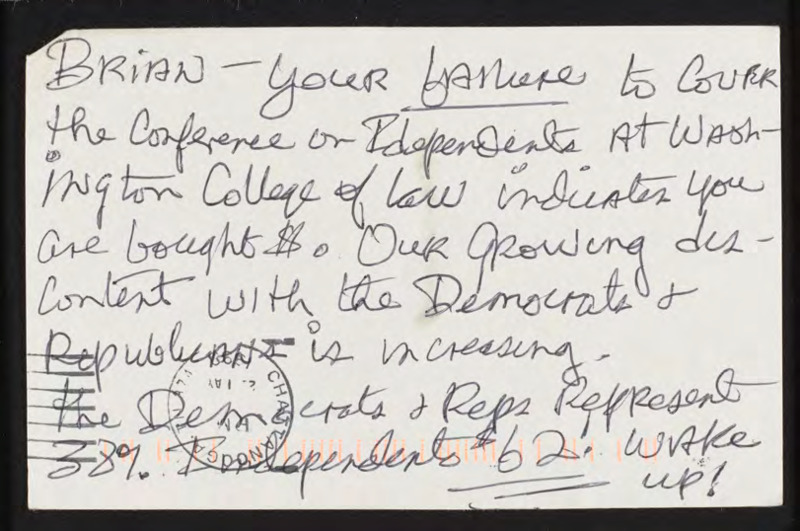 BRIAN – YOUR failure to COVER
the Conference on Idependents At Wash-
ington College of law indicates you
are bought $. OUR Growing dis-
content with the Democrats &
Republicans is increasing.
the Democrats & Reps Represent
38%. Independents 62. WAKE
up!